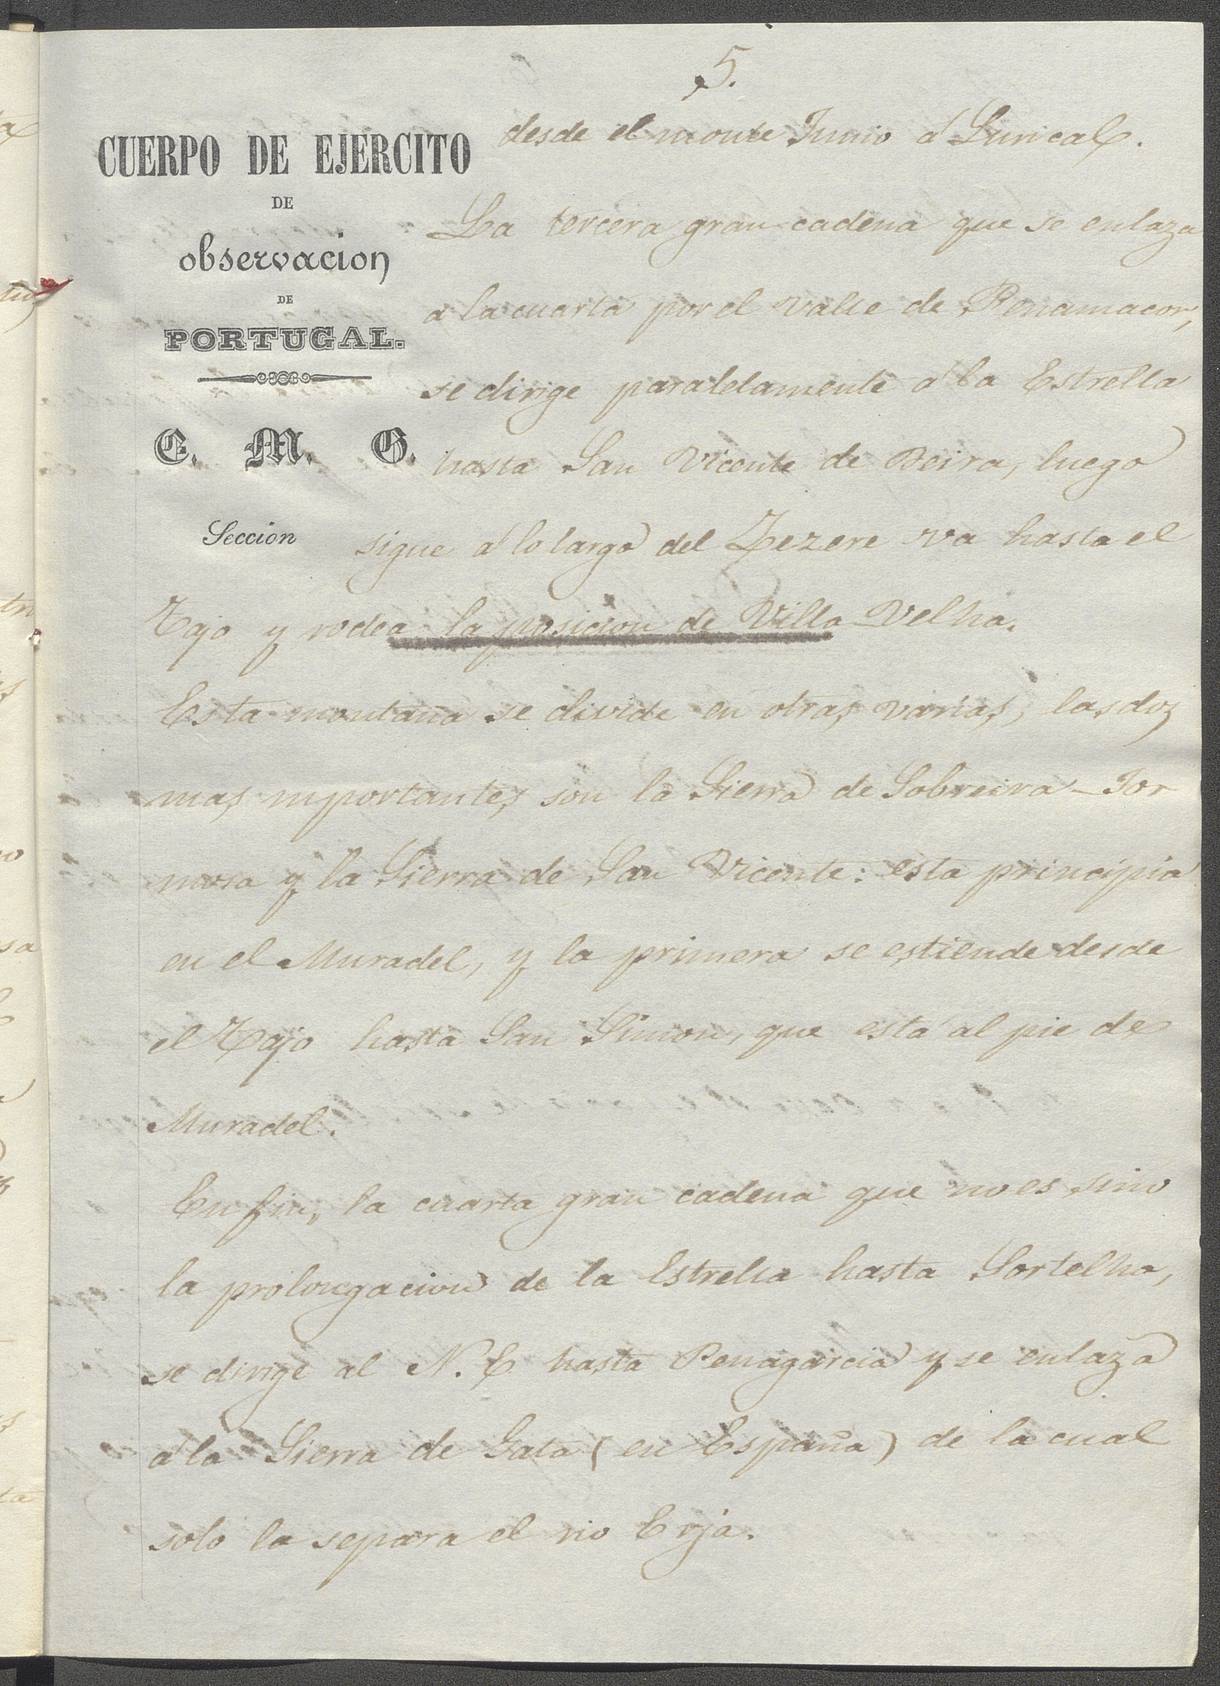 5.
CUERPO DE EJERCITO
DE
observacion
DE
PORTUGAL.
E. M. G.
Seccion
desde el monte Junio á Lurical.
La tercera gran cadena que se enlaza
á la cuarta por el valle de Penamacor,
se dirige paralelamente á la Estrella
hasta San Vicente de Beira, luego
sigue á lo largo del Zezere va hasta el
Tajo y rodea la posicion de Villa-Velha.
Esta montaña se divide en otras varias, las dos
mas importantes son la Sierra de Sobreira-For
mosa y la Sierra de San Vicente: esta principia
en el Muradel, y la primera se estiende desde
el Tajo hasta San Simon, que está al pie de
Muradel.
En fin, la cuarta gran cadena que no es sino
la prolongacion de la Estrella hasta Sortelha,
se dirige al N. E hasta Penagarcia y se enlaza
á la Sierra de Gata (en España) de la cual
solo la separa el rio Erja.